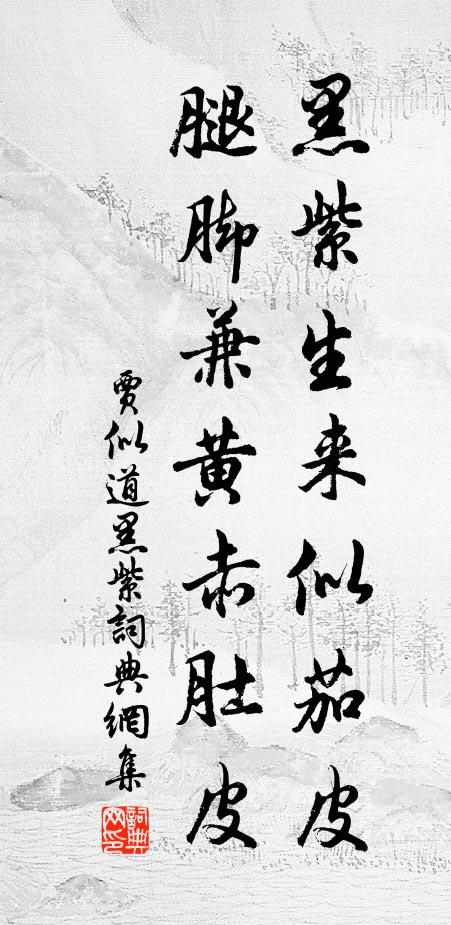 黑紫生来似茄皮
腿脚兼黄赤肚皮
賈似道黑紫詞典網集
詞典網印